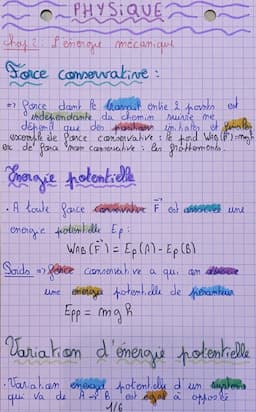 PHYSIQUE
Chap 2 : L'énergie mécanique
Force conservative :
=> force dont le travail entre 2 points est
indépendante du chemin suivie ne
dépend que des positions initiales et finales
exemple de force conservative : le poid WAB(P)=mgh
ex de force non conservative : les frottements.
Energie potentielle
• A toute force conservative F est associée une
energie potentielle Ep :
WAB (F) = Ep (A) - Ep (B)
Poids => force conservative a qui on associe
une energie potentielle de pesanteur
Epp = mgh
Variation d'énergie potentielle
• Variation energie potentielle d'un système
qui va de A à B est égal à opposée
1/6